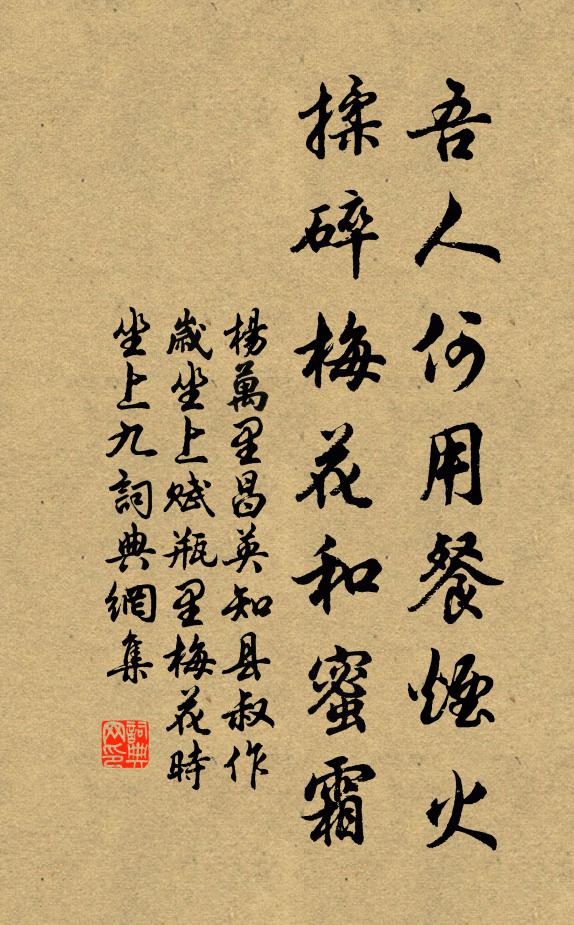 吾人何用餐煙火
揉碎梅花和蜜霜
楊萬里昌英知县叔作
歲坐上賦瓶里梅花時
坐上九詞典網集
詞典网印